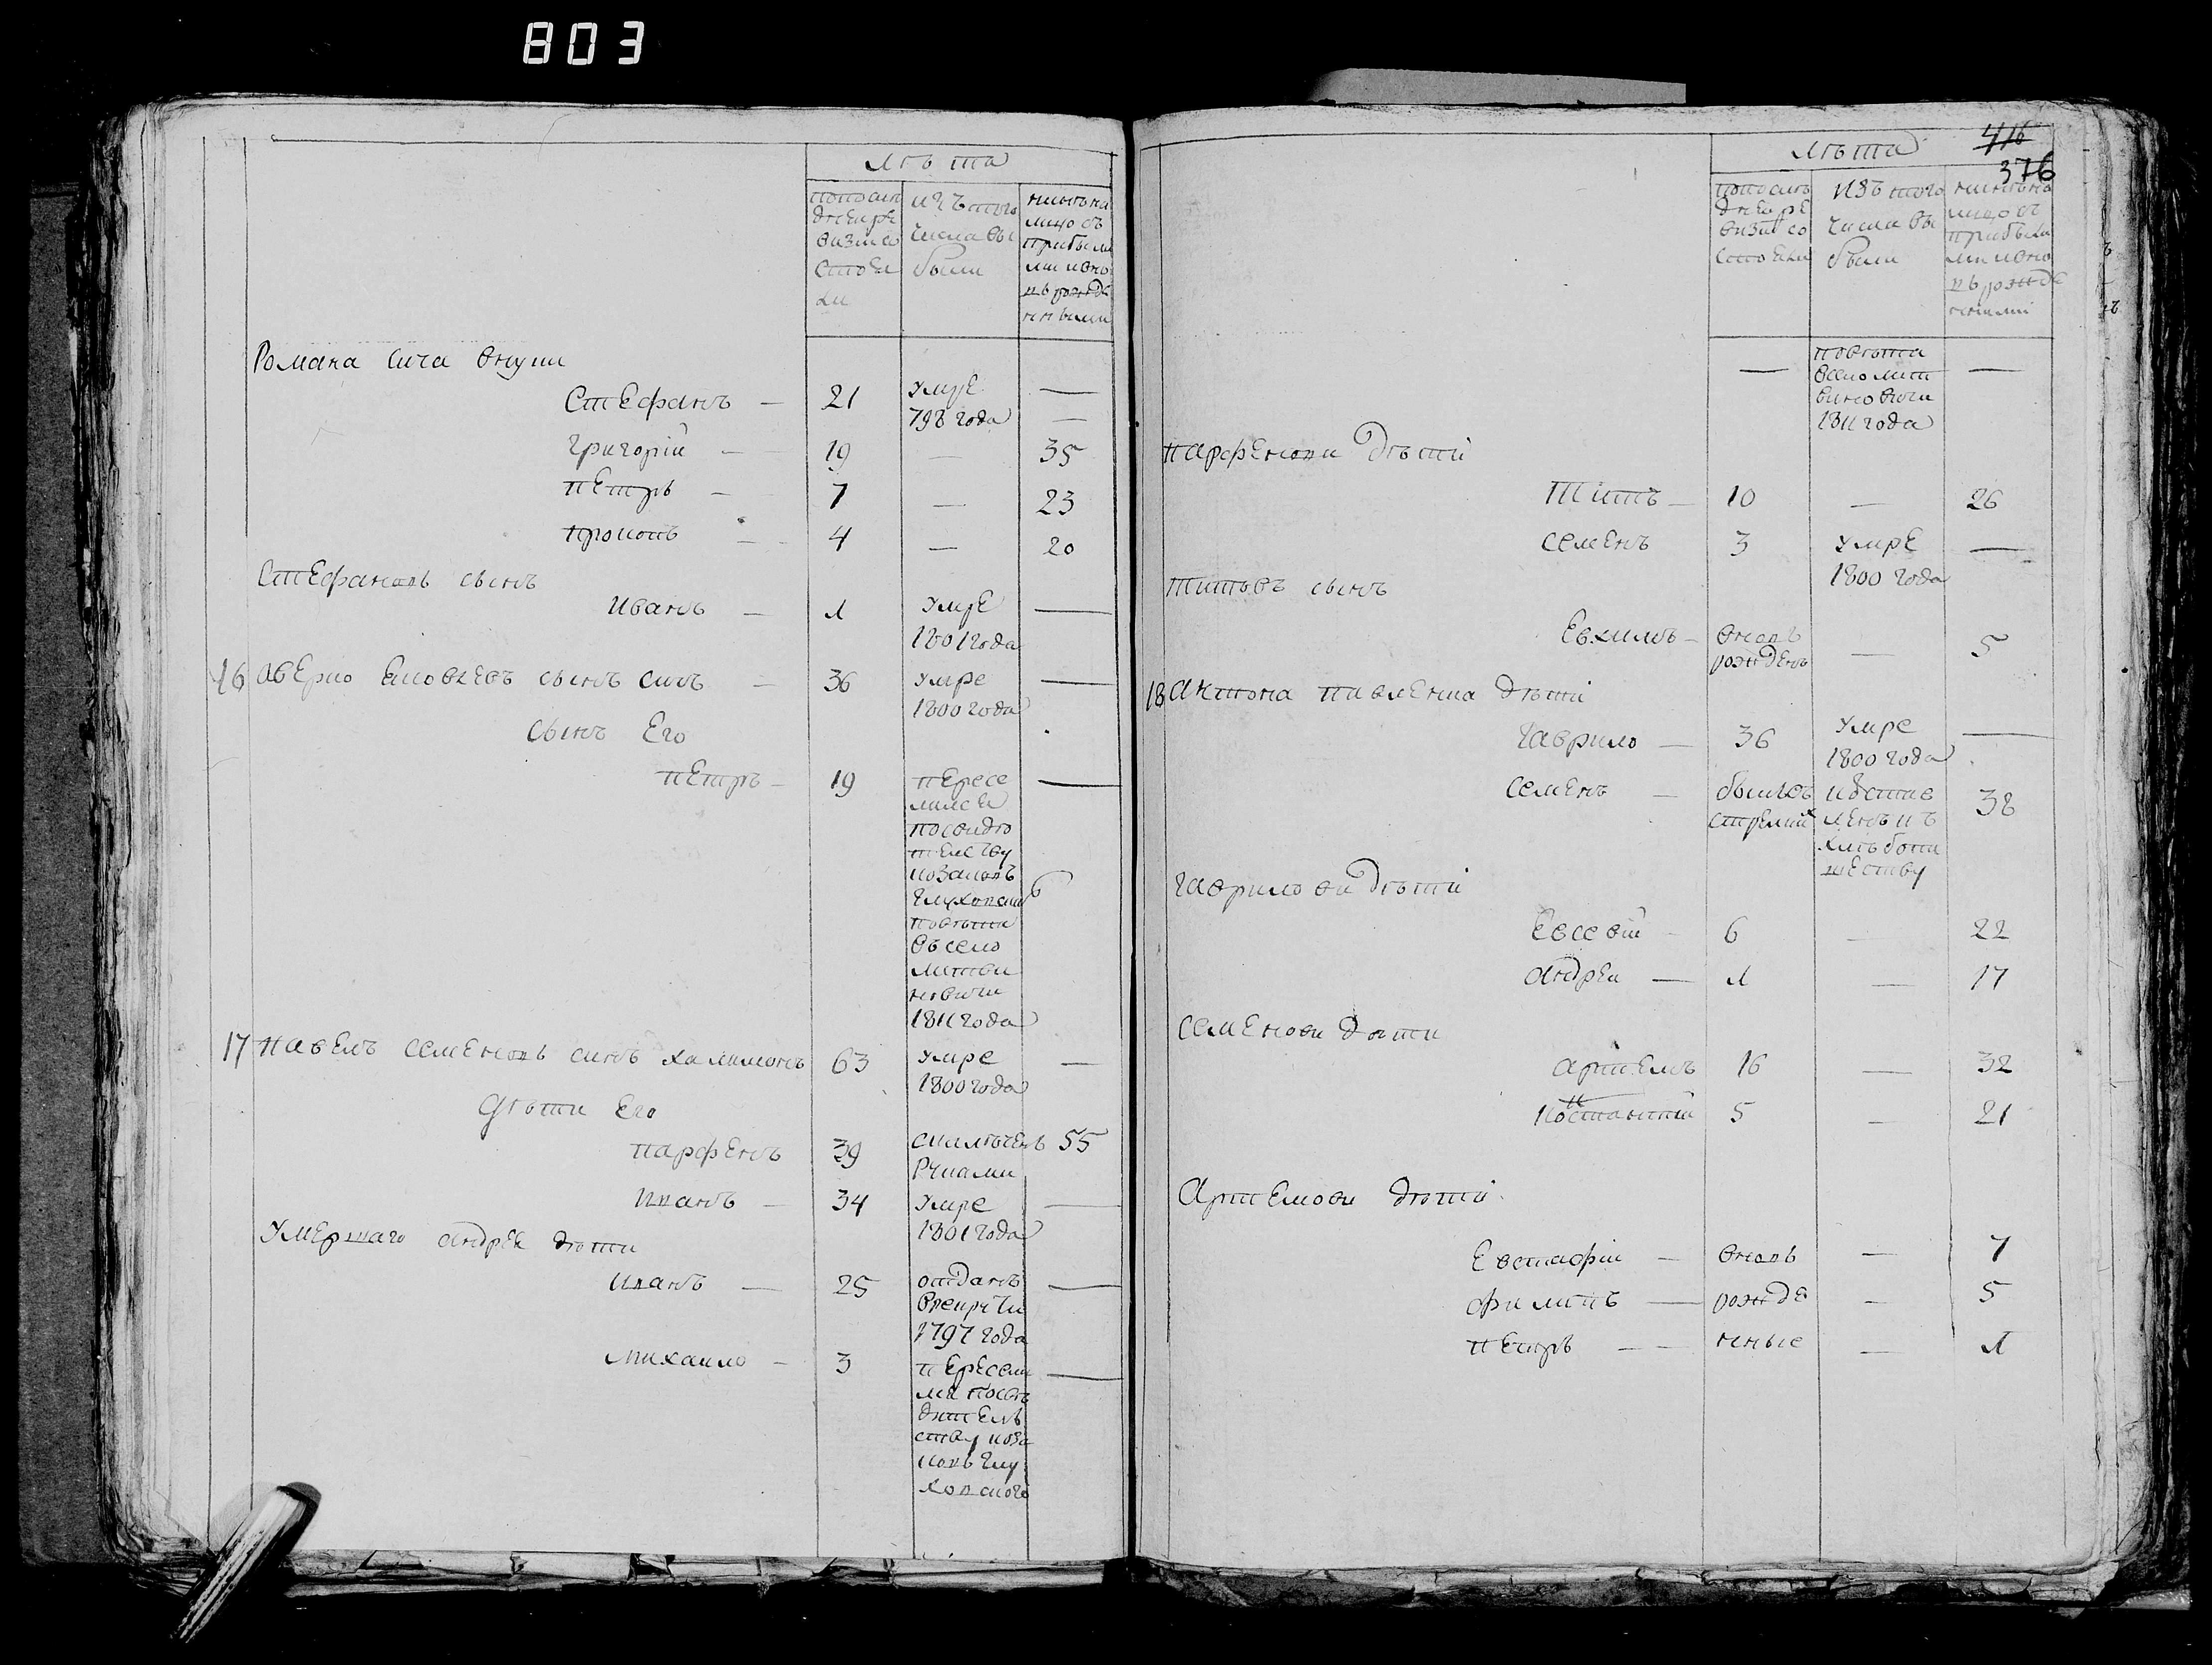 803
Лѣта
по последней ревизіи состояли
изъ того числа выбыли
нынѣ на лицо съ прибылыми и вновь рожденными
Романа Сича внуки
Стефанъ — 21 умре 798 года —
Григорій — 19 — 35
Петръ — 7 — 23
Прокопъ — 4 — 20
Стефановъ сынъ
Иванъ — 1 умре 1801 года —
16 Аверко Яковлевъ сынъ Сичъ — 36 умре 1800 года —
сынъ Его
Петръ — 19 —
пересе
лился
по свидѣ
телству
козаковъ
Глуховски
повѣта
въ село
литви
новичи
1811 года
17 Павелъ Семеновъ синъ Халимонъ 63 умре 1800 года —
Дѣти Его
Парфенъ 39 скалѣченъ руками 55
Иванъ — 34 умре 1801 года —
Умершаго Андрея дѣти
Иванъ — 25 отданъ в рекруты 1797 года —
Михаило — 3 —
пересели
лся по свѣ
дѣтель
ству коза
ковъ Глу
ховского
416
376
Лѣта
по последней ревизіи состояли
изъ того числа выбыли
нынѣ на лицо съ прибылыми и вновь рожденными
— повѣта —
в село лит
виновичи
1811 года
Парфенови Дѣти
Титъ — 10 — 26
Семенъ 3 умре 1800 года —
Титовъ сынъ
Евхимъ — вновь рожденъ — 5
18 Антона Павленка дѣти
Гаврило — 36 умре 1800 года —
Семенъ — 38
Гаврилови Дѣти
Евсевій — 6 — 22
Андрей — 1 — 17
Семенови Дѣти
Артемъ 16 — 32
Костантій 5 — 21
Артемови дѣти
Евстафій — вновь — 7
Филипъ — рожде — 5
Петръ — нные — 1